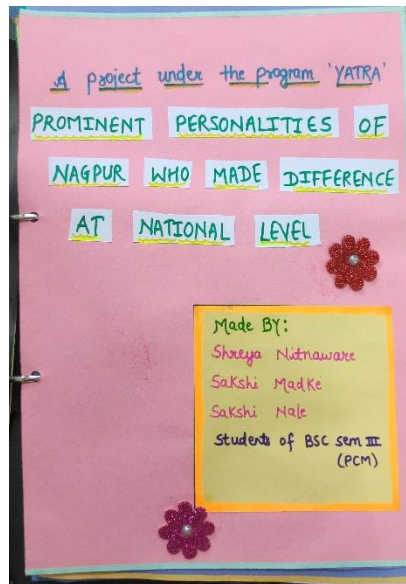 A project under the program 'YATRA'
PROMINENT PERSONALITIES OF
NAGPUR WHO MADE DIFFERENCE
AT NATIONAL LEVEL
Made BY:
Shreya Nitnaware
Sakshi Madke
Sakshi Nale
Students of BSC sem III
(PCM)